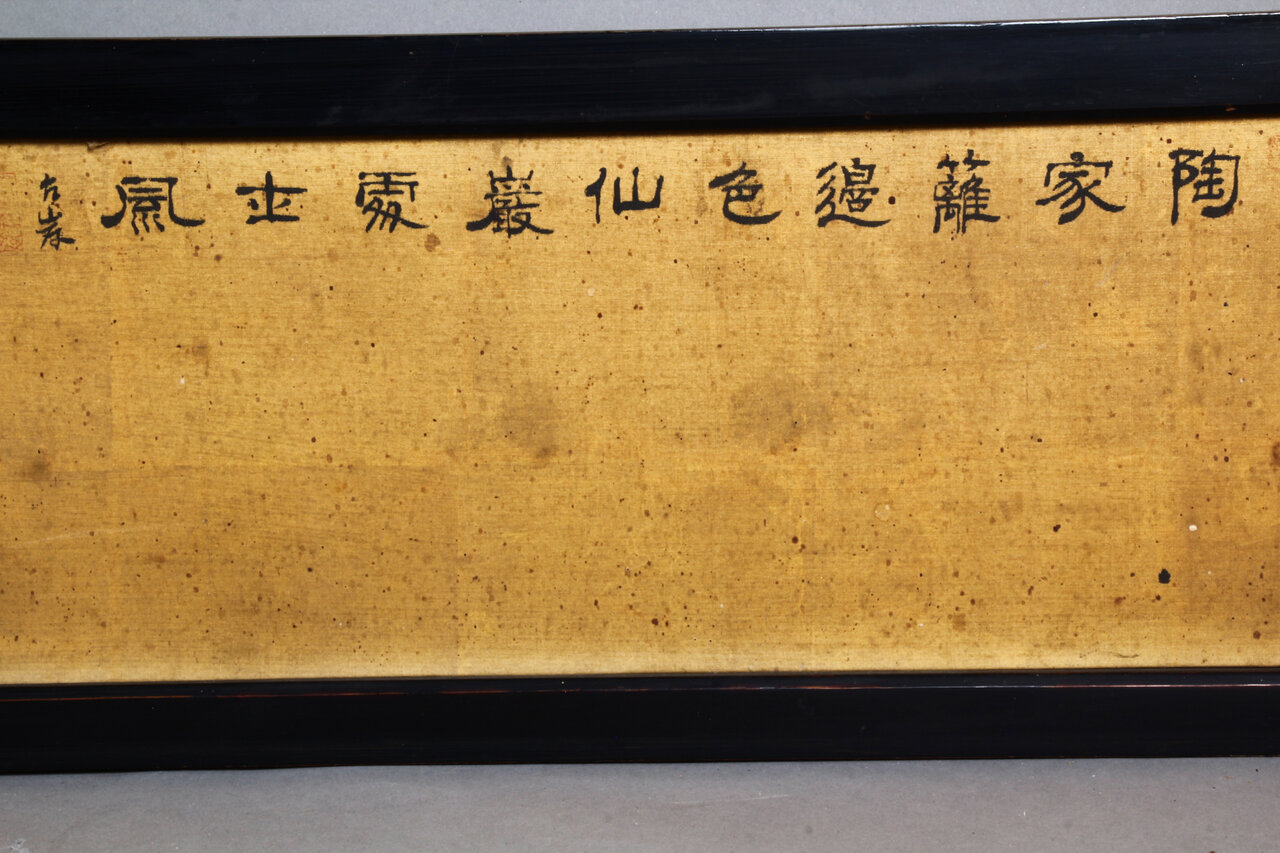 陶家籬邊色仙巖處士風